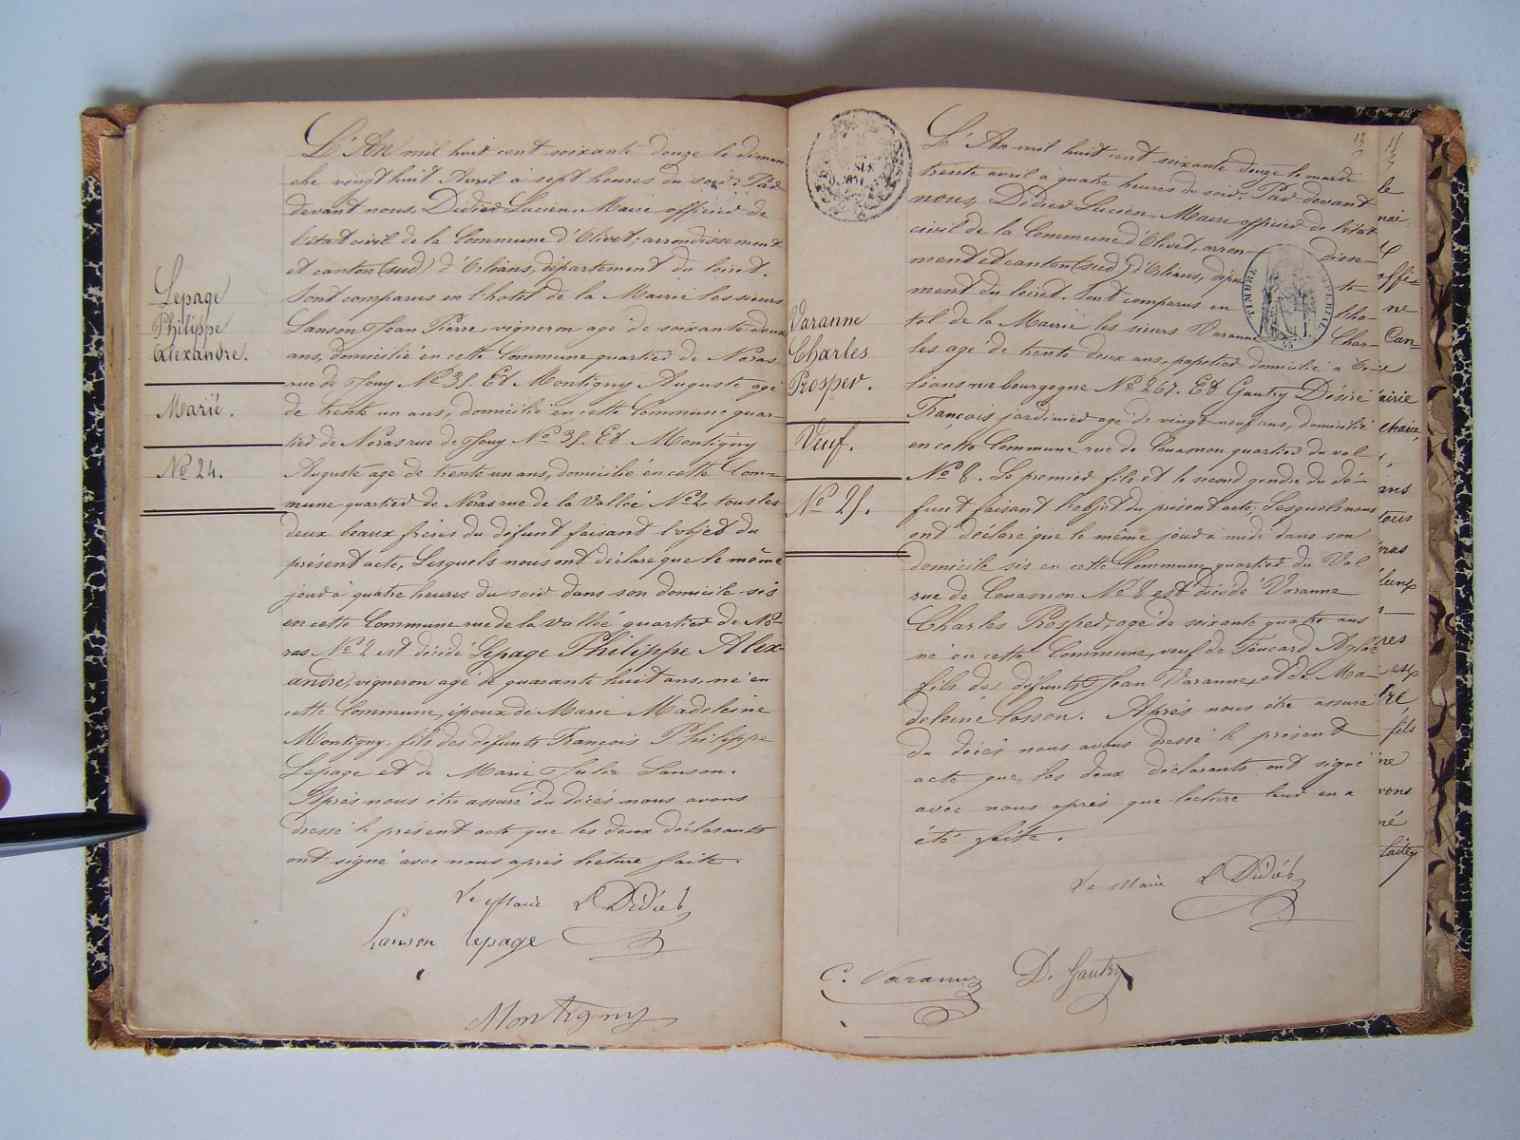 Lepage
Philippe
Alexandre.
Marié.
No 24.
L'An mil huit cent soixante douze le diman
che vingt huit Avril à sept heures du soir: Par
devant nous, Didier Lucien Maire officier de
l'état civil de la Commune d'Olivet, arrondissement
et canton (sud) d'Orléans, département du loiret.
Sont comparus en l'hotel de la Mairie les sieurs
Lanson Jean Pierre, vigneron agé de soixante deux
ans, domicilié en cette Commune quartier de Noras
rue de Jouy No 35. Et Montigny Auguste agé
de trente un ans, domicilié en cette Commune quar-
tier de Noras rue de Jouy No 35. Et Montigny
Auguste agé de trente un ans, domicilié en cette Com-
mune quartier de Noras rue de la Vallée No 2, tous les
deux beaux frères du défunt faisant l'objet du
présent acte, Lesquels nous ont déclaré que le même
jour à quatre heures du soir dans son domicile sis
en cette Commune rue de la vallée quartier de No-
ras No 2 est décédé Lepage Philippe Alex-
andre, vigneron agé de quarante huit ans, né en
cette Commune, époux de Marie Madeleine
Montigny, fils des défunts François Philippe
Lepage et de Marie Julie Lanson.
Après nous être assuré du décès nous avons
dressé le présent acte que les deux déclarants
ont signé avec nous après lecture faite.
Le Maire L Didier
Lanson lepage
Montigny
Varanne
Charles
Prosper.
Veuf.
No 25.
L'An mil huit cent soixante douze le mardi
trente avril à quatre heures du soir. Par devant
nous, Didier Lucien, Maire officier de l'état
civil de la Commune d'Olivet, arron- disse-
ment et canton (sud) d'Orléans, dépar te-
ment du loiret. Sont comparus en l'hô-
tel de la Mairie les sieurs Varanne Char-
les agé de trente deux ans, papetier domicilié à Orlé
ans rue bourgogne No 267. Et Gautry Désiré
François jardinier agé de vingt neuf ans, domicilié
en cette Commune rue de Couasnon quartier du val
No 8. Le premier fils et le second gendre du dé-
funt faisant l'objet du présent acte, Lesquels nous
ont déclaré que le même jour à midi dans son
domicile sis en cette Commune quartier du Val
rue de Couasnon No 8 est décédé Varanne
Charles Prosper, agé de soixante quatre ans
né en cette Commune, veuf de Foucard Aglaé
fils des défunts Jean Varanne, et de Ma-
deleine Cosson. Après nous être assuré
du décès nous avons dressé le présent
acte que les deux déclarants ont signé
avec nous après que lecture leur en a
été faite.
Le Maire L Didier
C. Varanne D. Gautry
TIMBRE IMPERIAL
13